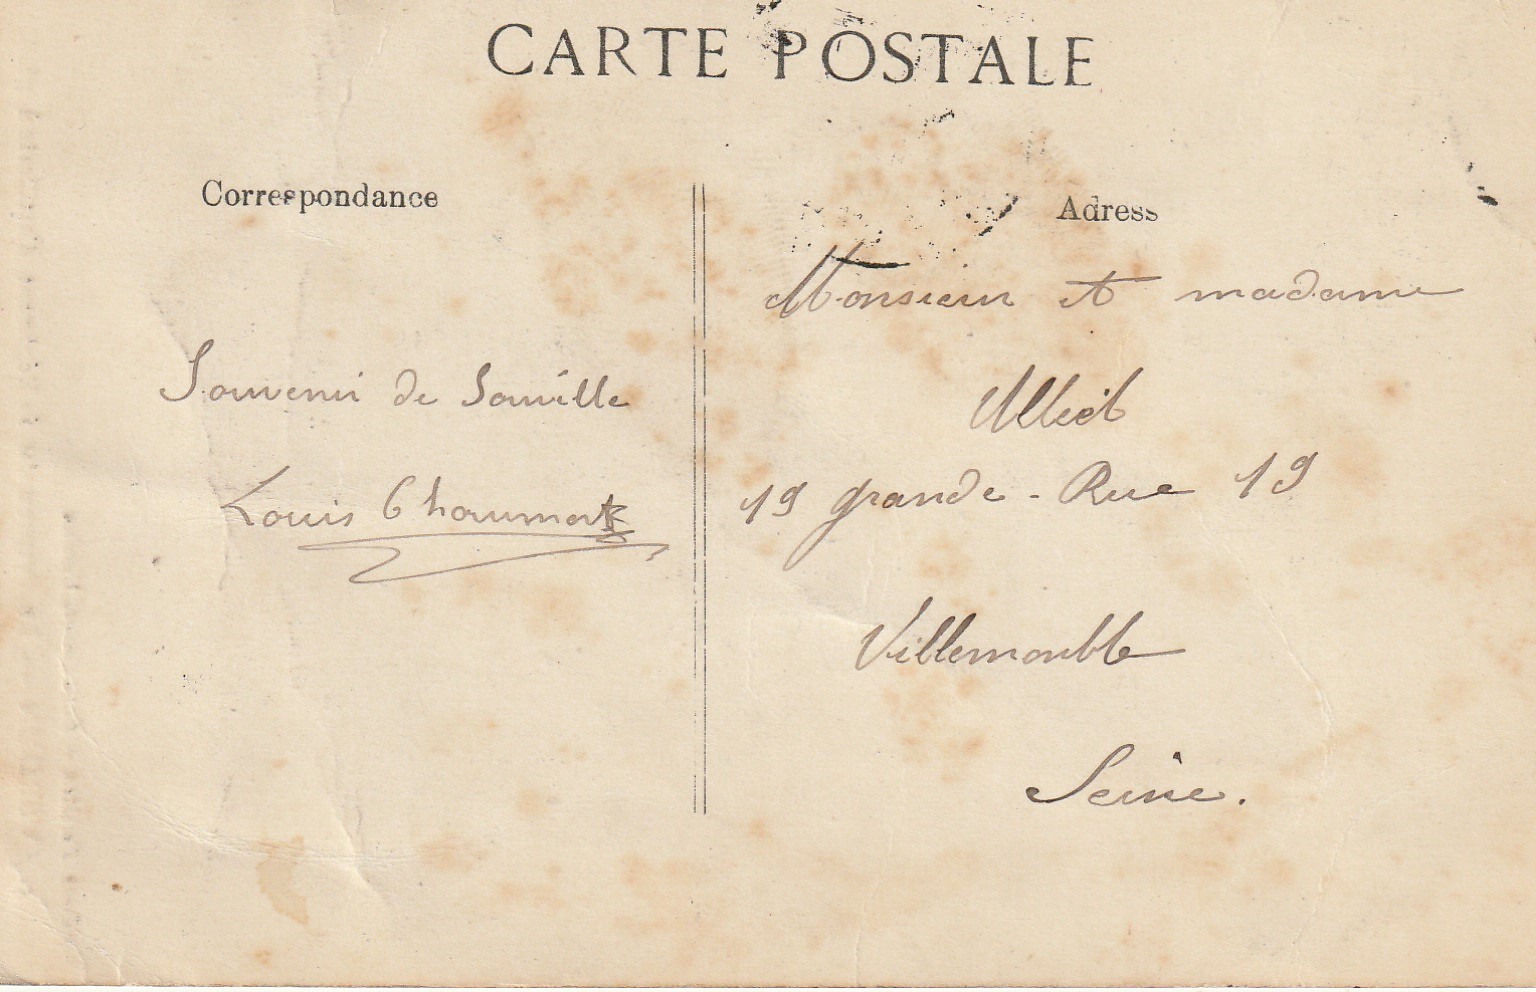 CARTE POSTALE
Correspondance
Souvenir de Souville
Louis Chaumat
Adress
Monsieur et madame
19 grande-Rue 19
Villemomble
Seine.